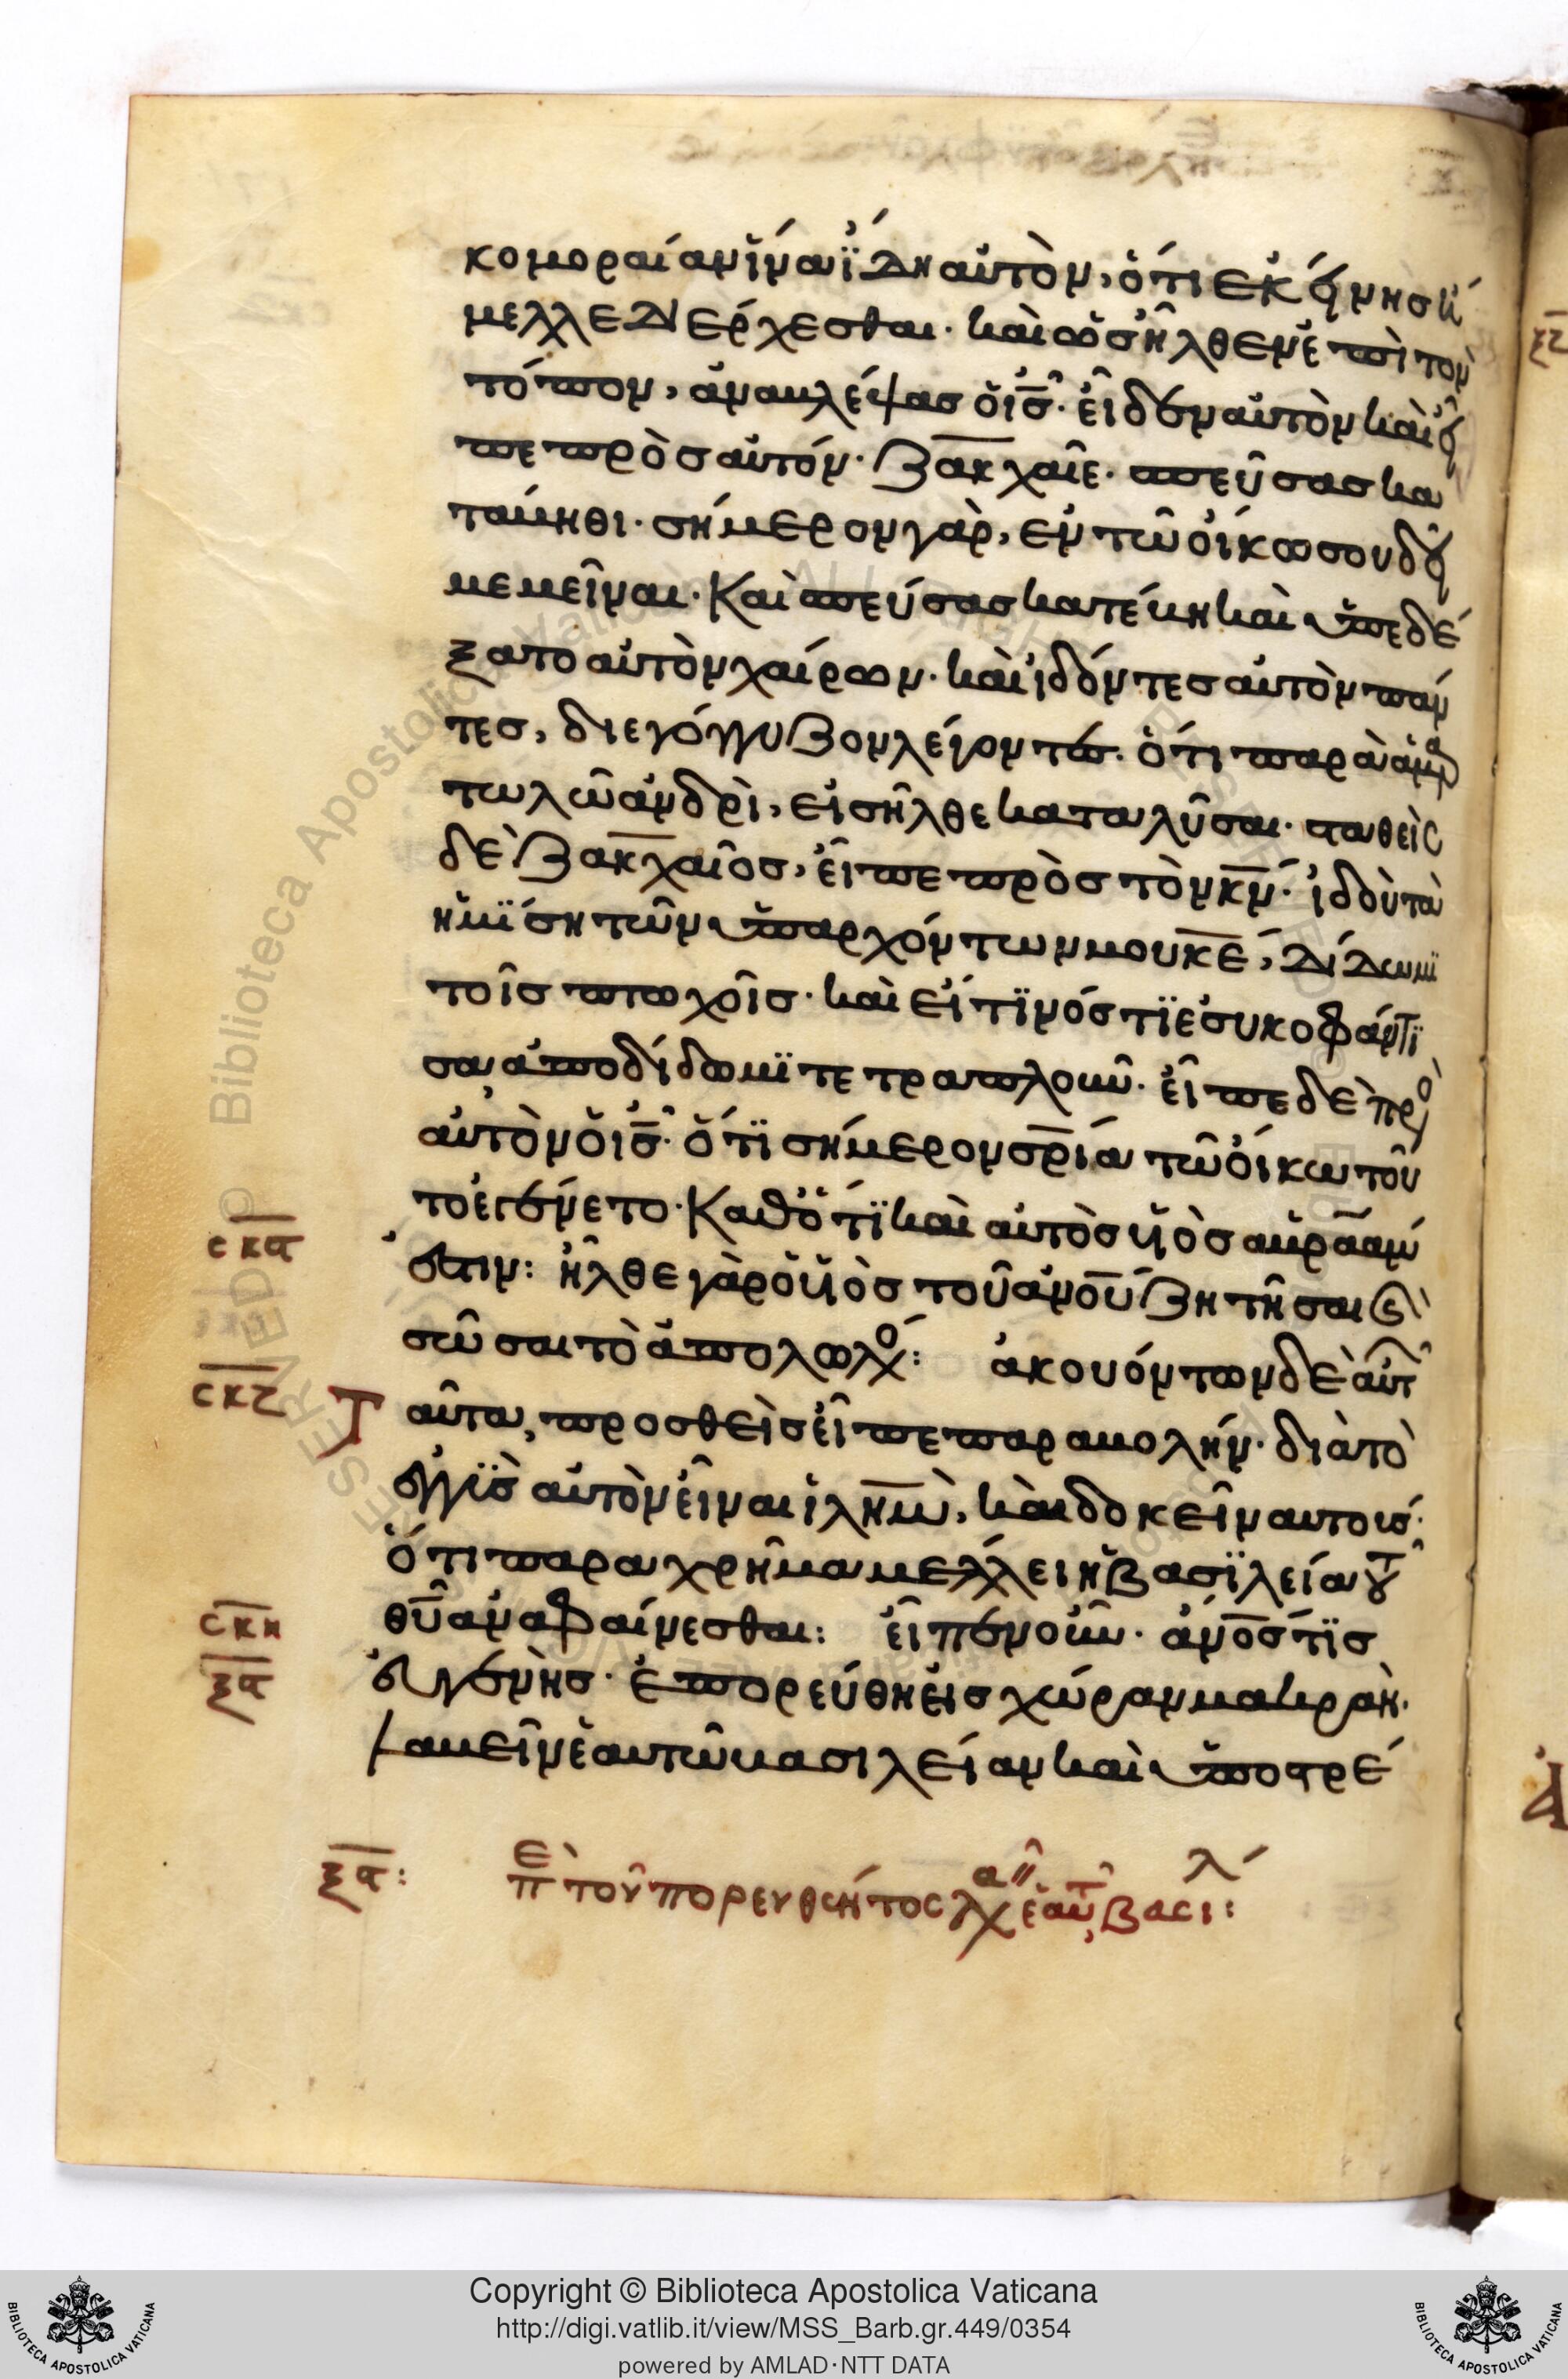 κομοραίαν ἵνα ἴδη αὐτὸν, ὅτι ἐκείνης ἤ
μελλε διέρχεσθαι. καὶ ὡς ἦλθεν ἐπὶ τὸν
τόπον, ἀναβλέψας ὁ ις̅. εἶδεν αὐτὸν καὶ εἶ
πε πρὸς αὐτόν. Ζακχαῖε. σπεῦσας κα
τάβηθι. σήμερον γὰρ, ἐν τῶ οἴκω σου δεῖ
με μεῖναι. Καὶ σπεύσας κατέβη καὶ ὑπεδέ
ξατο αὐτὸν χαίρων. καὶ ἰδόντες αὐτὸν πάν
τες, διεγόγγυζον λέγοντες. ὅτι παρὰ ἁμαρ
τωλῶ ἀνδρὶ, εἰσῆλθε καταλῦσαι. σταθεὶς
δὲ Ζακχαῖος, εἶπε πρὸς τὸν κ̅ν̅. ἰδοὺ τὰ
ἡμίση τῶν ὑπαρχόντων μου κ̅ε̅, δίδωμι
τοῖς πτωχοῖς. καὶ εἴ τινός τι ἐσυκοφάντη
σα, ἀποδίδωμι τετραπλοῦν. εἶπε δὲ πρὸ
αὐτὸν ὁ ις̅. ὅτι σήμερον σ̅ρ̅ία τῶ οἴκω τού
τω ἐγένετο. Καθότι καὶ αὐτὸς υἱὸς ἀβρααμ
ἐστιν: ἦλθε γὰρ ὁ υἱὸς τοῦ ἀν̅ο̅υ̅ ζητῆσαι καὶ
σῶσαι τὸ ἀπολωλός: ἀκουόντων δὲ αὐτ
Ταῦτα, προσθεὶς εἶπε παραβολήν. διὰ τὸ
ἐγγὺς αὐτὸν εἶναι ἱλη̅μ̅, καὶ δοκεῖν αὐτοις.
ὅτι παραχρῆμα μέλλει ἡ βασιλεία τοῦ
θ̅υ̅ ἀναφαίνεσθαι: εἶπεν οὖν. ἀν̅ο̅ς̅ τὶς
εὐγενὴς. ἐπορεύθη εἰς χώραν μακρὰν.
λαβεῖν ἑαυτῶ βασιλείαν καὶ ὑποστρέ
σκϛ
σκζ
σκη
ξϛ
ξϛ: πε τοῦ πορευθέντος λα ἑαυτ βασιλ:
Copyright © Biblioteca Apostolica Vaticana
http://digi.vatlib.it/view/MSS_Barb.gr.449/0354
powered by AMLAD·NTT DATA
BIBLIOTECA APOSTOLICA VATICANA
BIBLIOTECA APOSTOLICA VATICANA